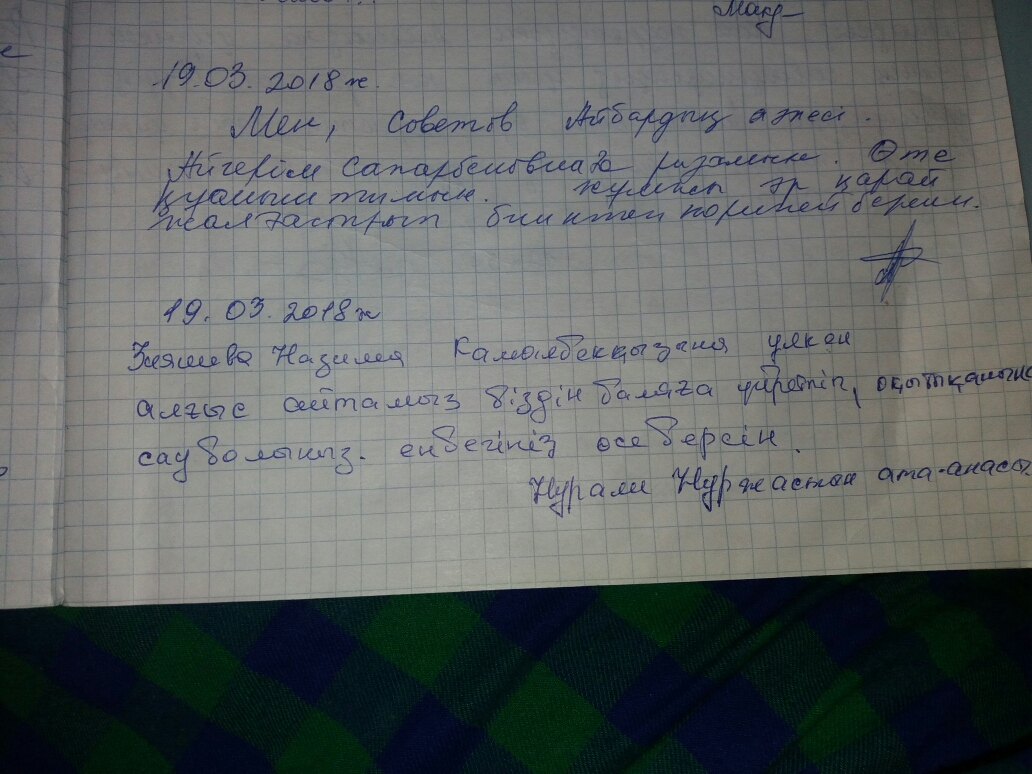 19.03.2018ж.
Мен, Советов Айбардың әжесі.
Айгерім Сапарбековнаға ризамын. Өте
қуаныштымын. жұмысы әр қарай
жалғастырып биіктен көріней берсин.
19.03.2018ж
Назима Камалбекқызына үлкен
алғыс айтамыз біздін балаға үйретіп, оқытқанына
сау болыныз. енбегініз өсе берсін.
Нурали Нуржастын ата-анасы